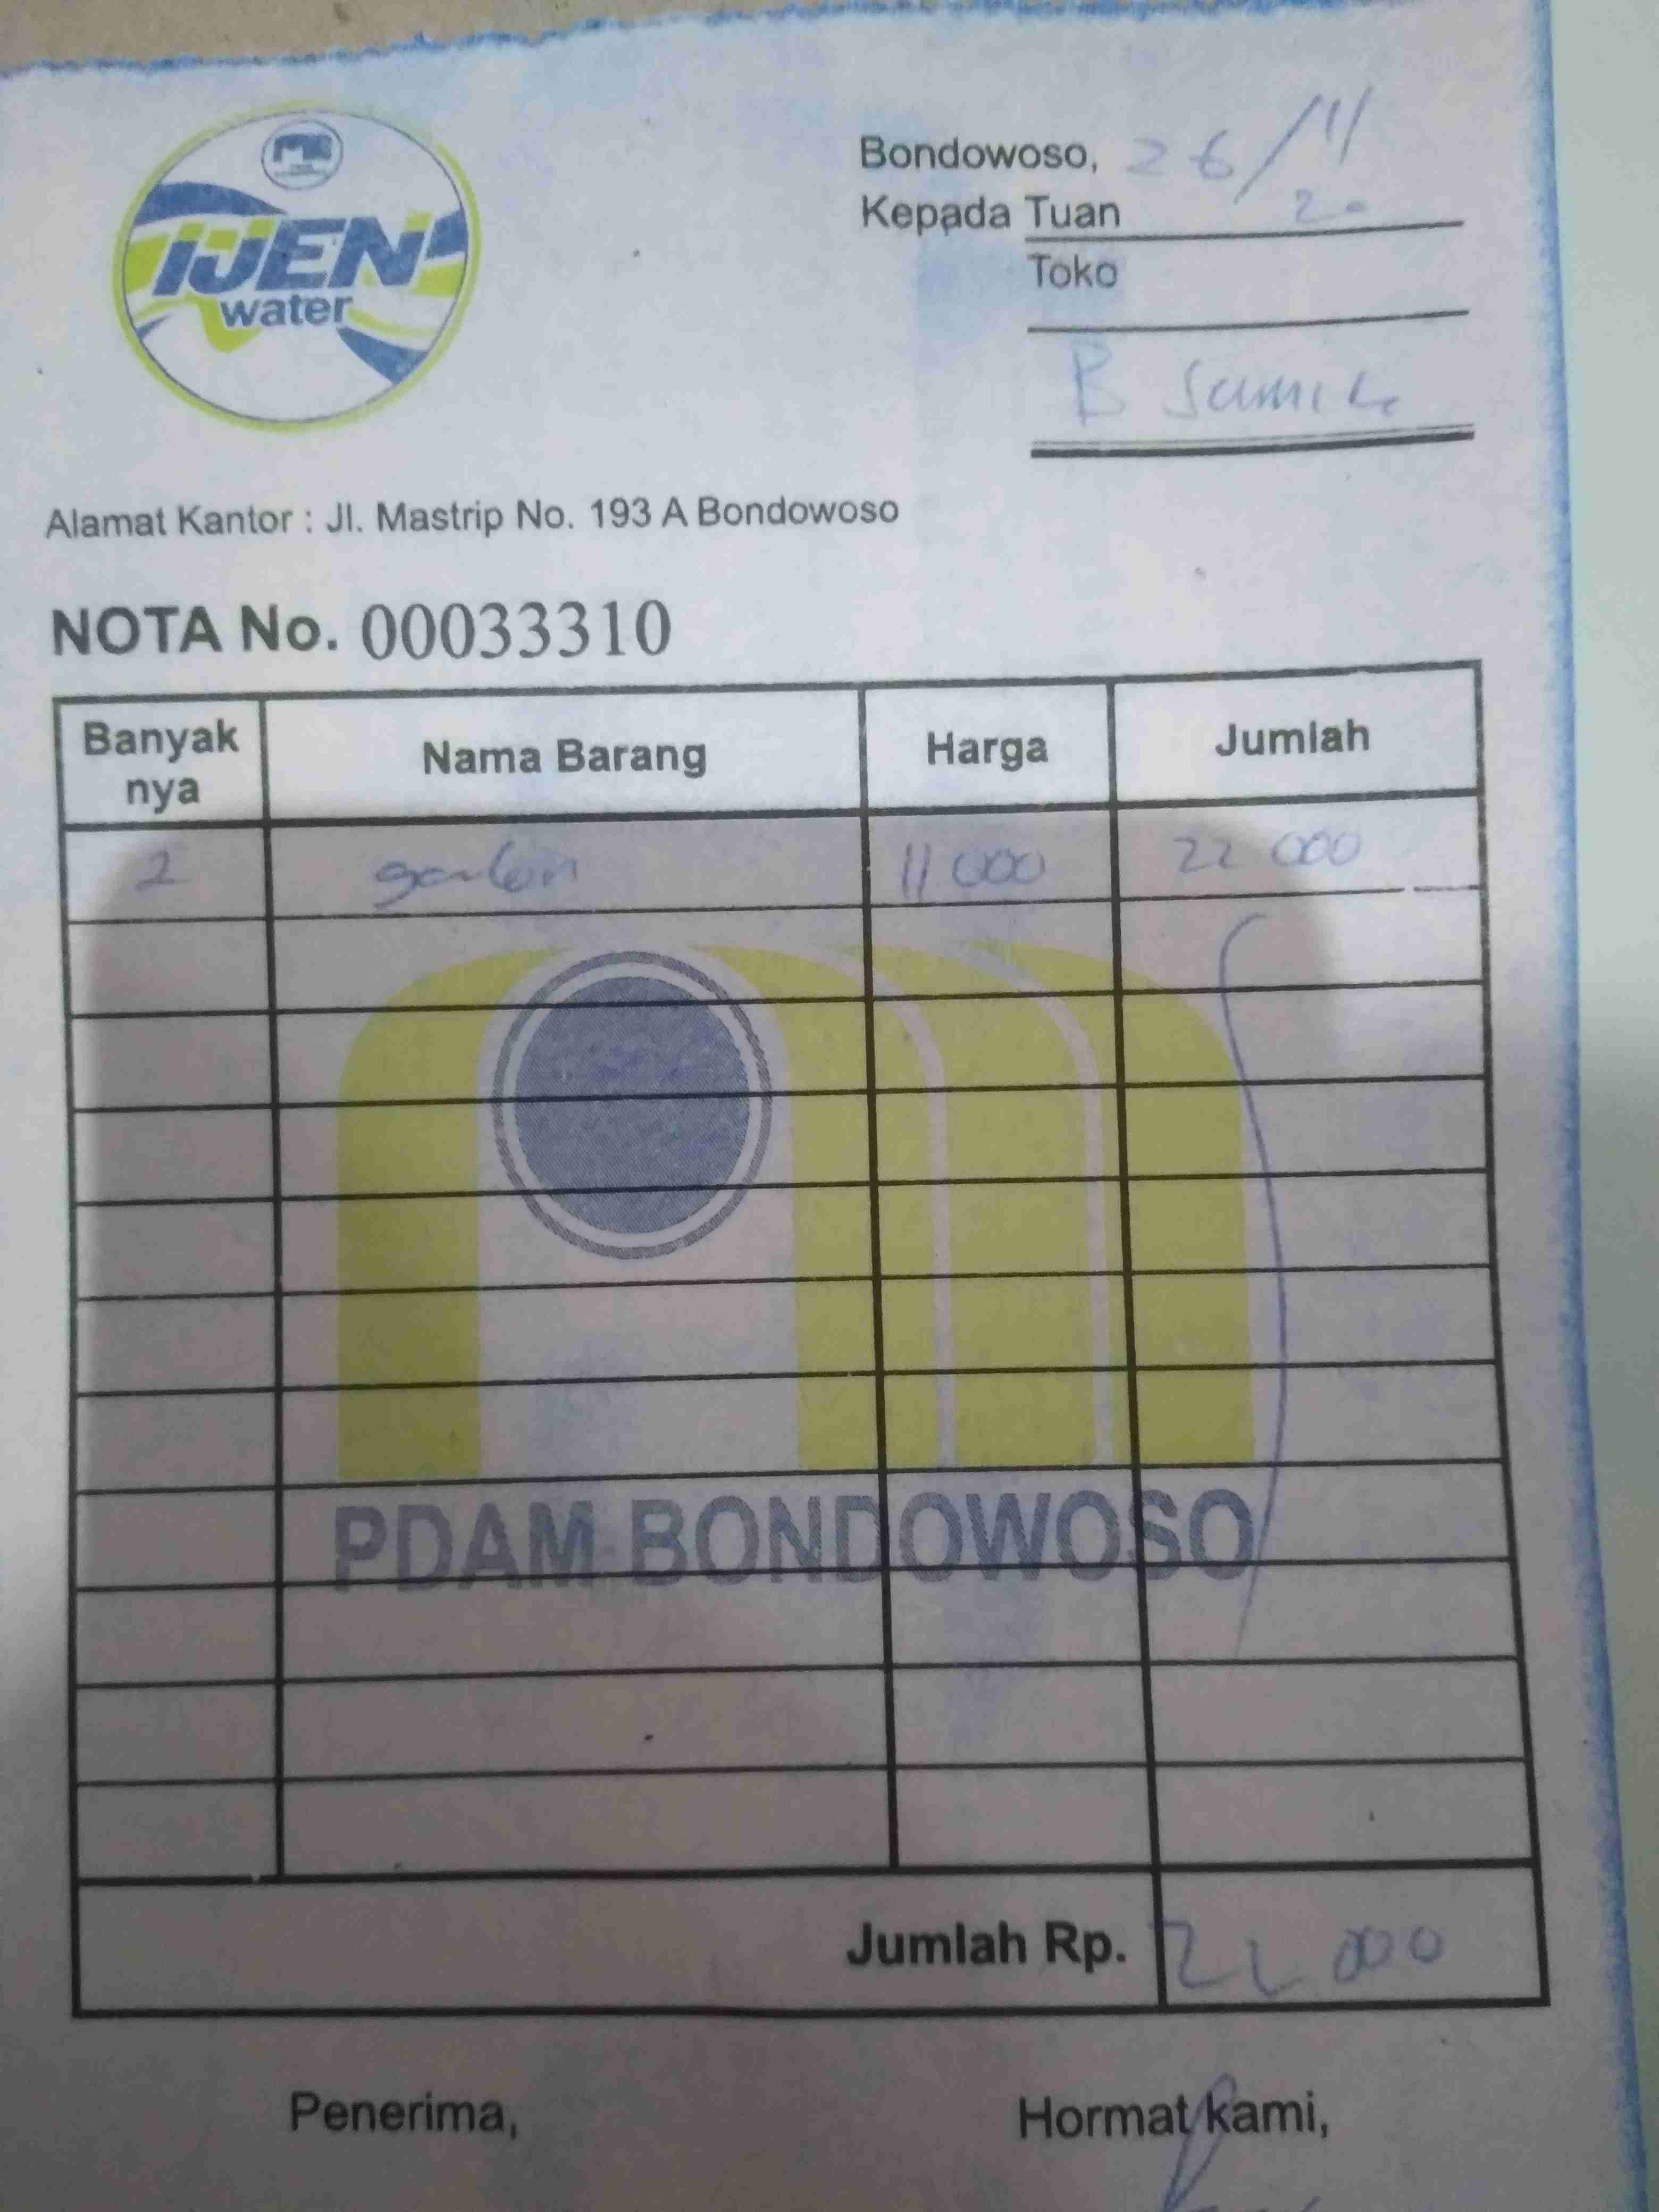 IJEN
water
Bondowoso, 26/11
20
Kepada Tuan
Toko
B
Alamat Kantor : Jl. Mastrip No. 193 A Bondowoso
NOTA No. 00033310
Banyak nya Nama Barang Harga Jumlah
2 galon 11 000 22 000
PDAM BONDOWOSO
Jumlah Rp. 22 000
Penerima, Hormat kami,